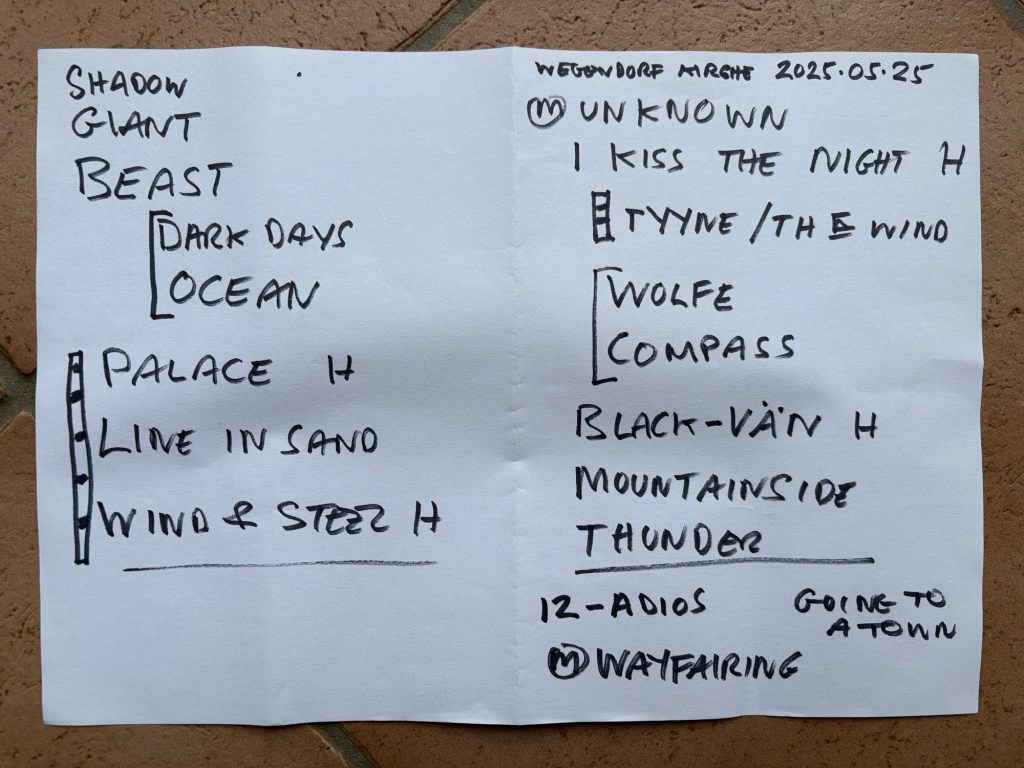 SHADOW
GIANT
BEAST
DARK DAYS
OCEAN
PALACE H
LINE IN SAND
WIND & STEEL H
WEGENDORF KIRCHE 2025.05.25
Ⓜ UNKNOWN
I KISS THE NIGHT H
TYYNE / THE WIND
WOLFE
COMPASS
BLACK-VÄN H
MOUNTAINSIDE
THUNDER
12-ADIOS
GOING TO
A TOWN
Ⓜ WAYFAIRING